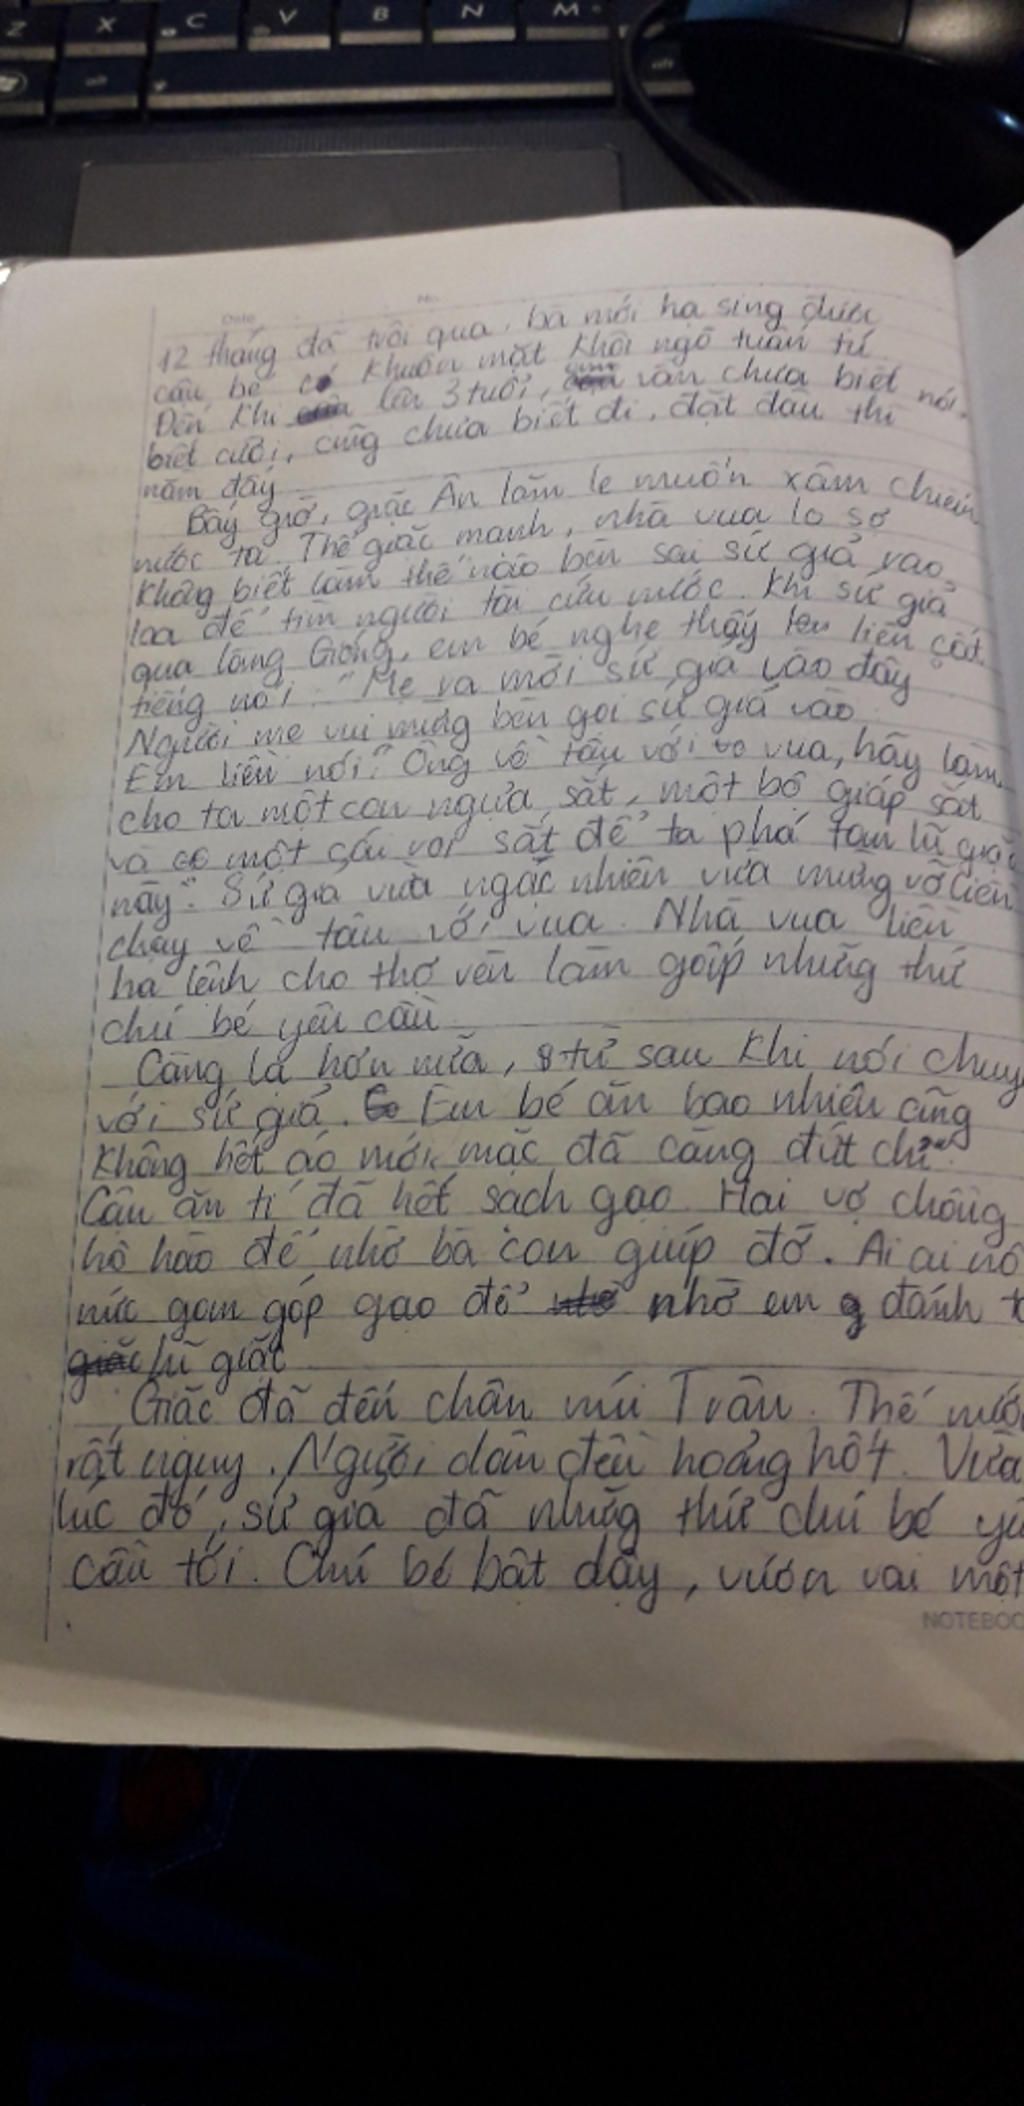 Z X C V B N M
Date No.
12 tháng đã trôi qua, bà mới hạ sing được
cậu bé có khuôn mặt khôi ngô tuấn tú.
Đến khi lên 3 tuổi, vẫn chưa biết nói,
biết cười, cũng chưa biết đi, đặt đâu thì
nằm đấy
Bấy giờ, giặc Ân lăm le muốn xâm chiếm
nước ta. Thế giặc mạnh, nhà vua lo sợ
không biết làm thế nào bèn sai sứ giả rao
loa để tìm người tài cứu nước. Khi sứ giả
qua làng Gióng, em bé nghe thấy liền cất
tiếng nói "Mẹ ra mời sứ giả vào đây
Người mẹ vui mừng bèn gọi sứ giả vào
Em liền nói: "Ông về tâu với vua, hãy làm
cho ta một con ngựa sắt, một bộ giáp sắt
và một cái roi sắt để ta phá tan lũ giặc
này". Sứ giả vừa ngạc nhiên vừa mừng rỡ liền
chạy về tâu với vua. Nhà vua liền
hạ lệnh cho thợ rèn làm gấp những thứ
chú bé yêu cầu
Càng lạ hơn nữa, từ sau khi nói chuy
với sứ giả. Em bé ăn bao nhiêu cũng
không hết áo mới mặc đã căng đứt chỉ.
Cậu ăn tí đã hết sạch gạo. Hai vợ chồng
hô hào để nhờ bà con giúp đỡ. Ai ai nô
nức gom góp gạo để nhờ em đánh t
lũ giặc
Giặc đã đến chân núi Trâu. Thế nước
rất nguy. Người dân đều hoảng hốt. Vừa
lúc đó, sứ giả đã những thứ chú bé yê
cầu tới. Chú bé bật dậy, vươn vai một
NOTEBOO